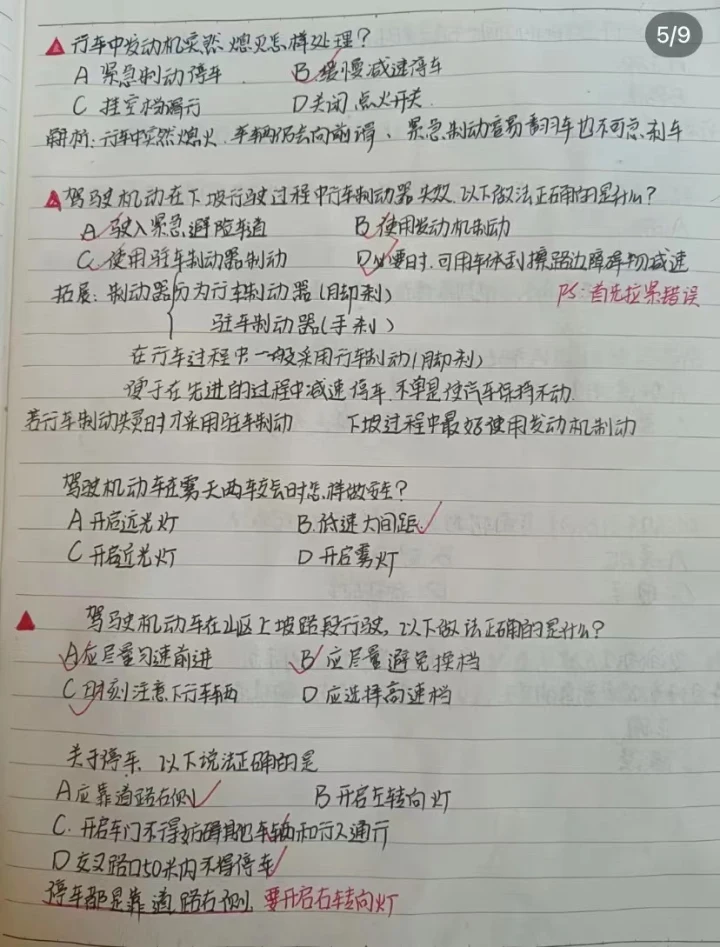 5/9
行车中发动机突然熄灭怎样处理?
A 紧急制动停车 B 缓慢减速停车
C 挂空档滑行 D 关闭点火开关
解析:行车中突然熄火,车辆仍会向前滑、紧急制动容易翻车也不可急刹车
驾驶机动在下坡行驶过程中行车制动器失效,以下做法正确的是什么?
A 驶入紧急避险车道 B 使用发动机制动
C 使用驻车制动器制动 D 必要时,可用车体刮擦路边障碍物减速
拓展:制动器分为行车制动器(脚刹) PS:首先拉紧错误
驻车制动器(手刹)
在行车过程中一般采用行车制动(脚刹)
便于在先进的过程中减速停车,不单是使汽车保持不动.
若行车制动失灵时才采用驻车制动 下坡过程中最好使用发动机制动
驾驶机动车在雾天两车交会时怎样做安全?
A 开启远光灯 B.低速大间距
C 开启近光灯 D 开启雾灯
驾驶机动车在山区上坡路段行驶,以下做法正确的是什么?
A 应尽量匀速前进 B 应尽量避免换档
C 时刻注意下行车辆 D 应选择高速档
关于停车,以下说法正确的是
A 应靠道路右侧 B 开启左转向灯
C.开启车门不得妨碍其他车辆和行人通行
D 交叉路口50米内不得停车
停车都是靠道路右侧,要开启右转向灯